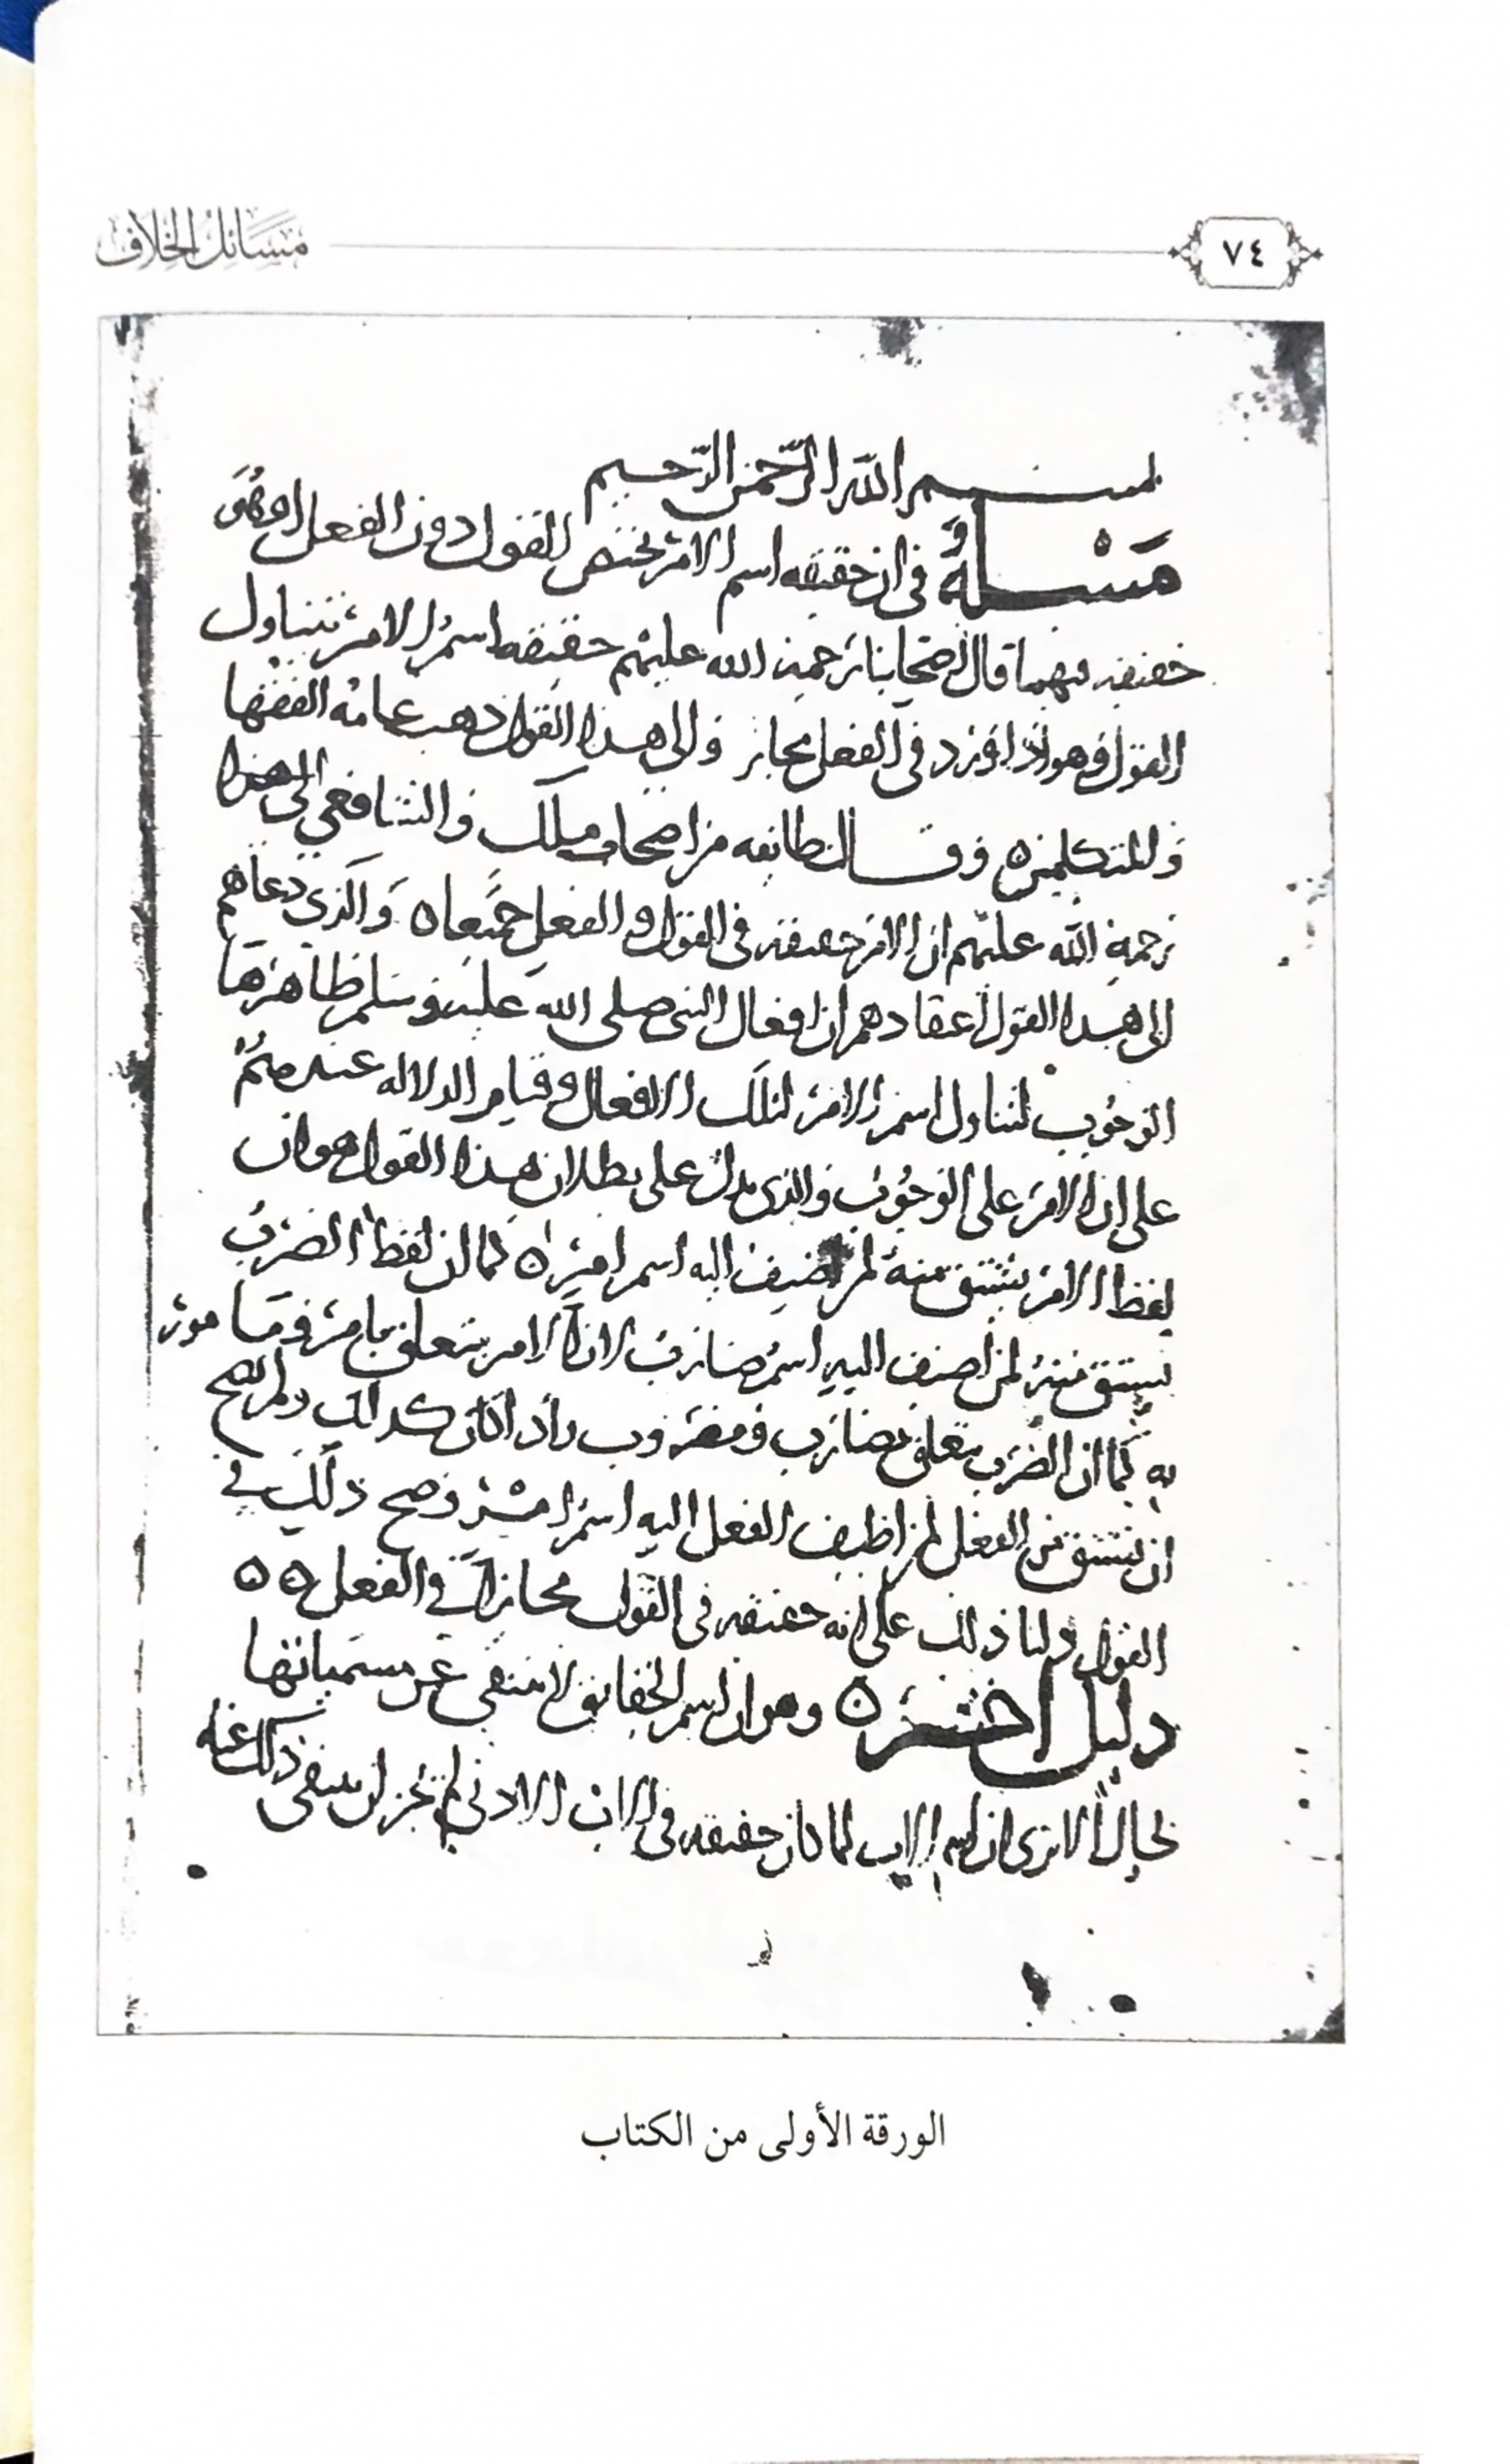 مسائل الخلاف
٧٤
بسم الله الرحمن الرحيم
مسئلة في ان حقيقه اسم الامر يختص القول دون الفعل او هو
حقيقه فيهما قال اصحابنا رحمة الله عليهم حقيقه اسم الامر تتناول
القول وهو اذا ورد في الفعل مجاز والى هذا القول ذهب عامه الفقها
والمتكلمين ه وقال طائفه من اصحاب ملك والشافعي الى هذا
رحمة الله عليهم ان الامر حقيقه في القول والفعل جميعا ه والذي دعاهم
الى هذا القول اعتقادهم ان افعال النبي صلى الله عليه وسلم ظاهرها
الوجوب لتناول اسم الامر لتلك الافعال وقيام الدلاله عندهم
على ان الامر على الوجوب والذي يدل على بطلان هذا القول هو ان
لفظ الامر يشتق منه لمن اضيف اليه اسم امر ه كما ان لفظ الضرب
يشتق منه لمن اضيف اليه اسم ضارب لان الامر يتعلق بامر ومامور
به كما ان الضرب يتعلق بضارب ومضروب واذا كان كذلك ولم يصح
ان يشتق من الفعل لمن اظيف الفعل اليه اسم امر وصح ذلك في
القول دلنا ذلك على انه حقيقه في القول مجاز في الفعل ه ه
دليل اخر ه وهو ان اسم الحقايق لا ينتفي عن مسمياتها
بحال الا ترى ان اسم الاب لما كان حقيقه في الاب الادنى لم يجز ان ينتفي ذلك عنه
الورقة الأولى من الكتاب